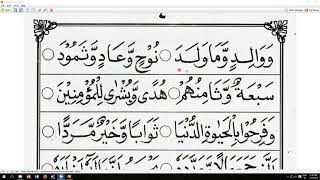 وَوَالِدٍ وَّمَا وَلَدَ ○ نُوْحٍ وَّعَادٍ وَّثَمُوْدَ ○
سَبْعَةٌ وَّثَامِنُهُمْ ○ هُدًى وَّبُشْرٰى لِلْمُؤْمِنِيْنَ ○
وَفَرِحُوْا بِالْحَيٰوةِ الدُّنْيَا ○ ثَوَابًا وَّخَيْرٌ مَّرَدًّا ○